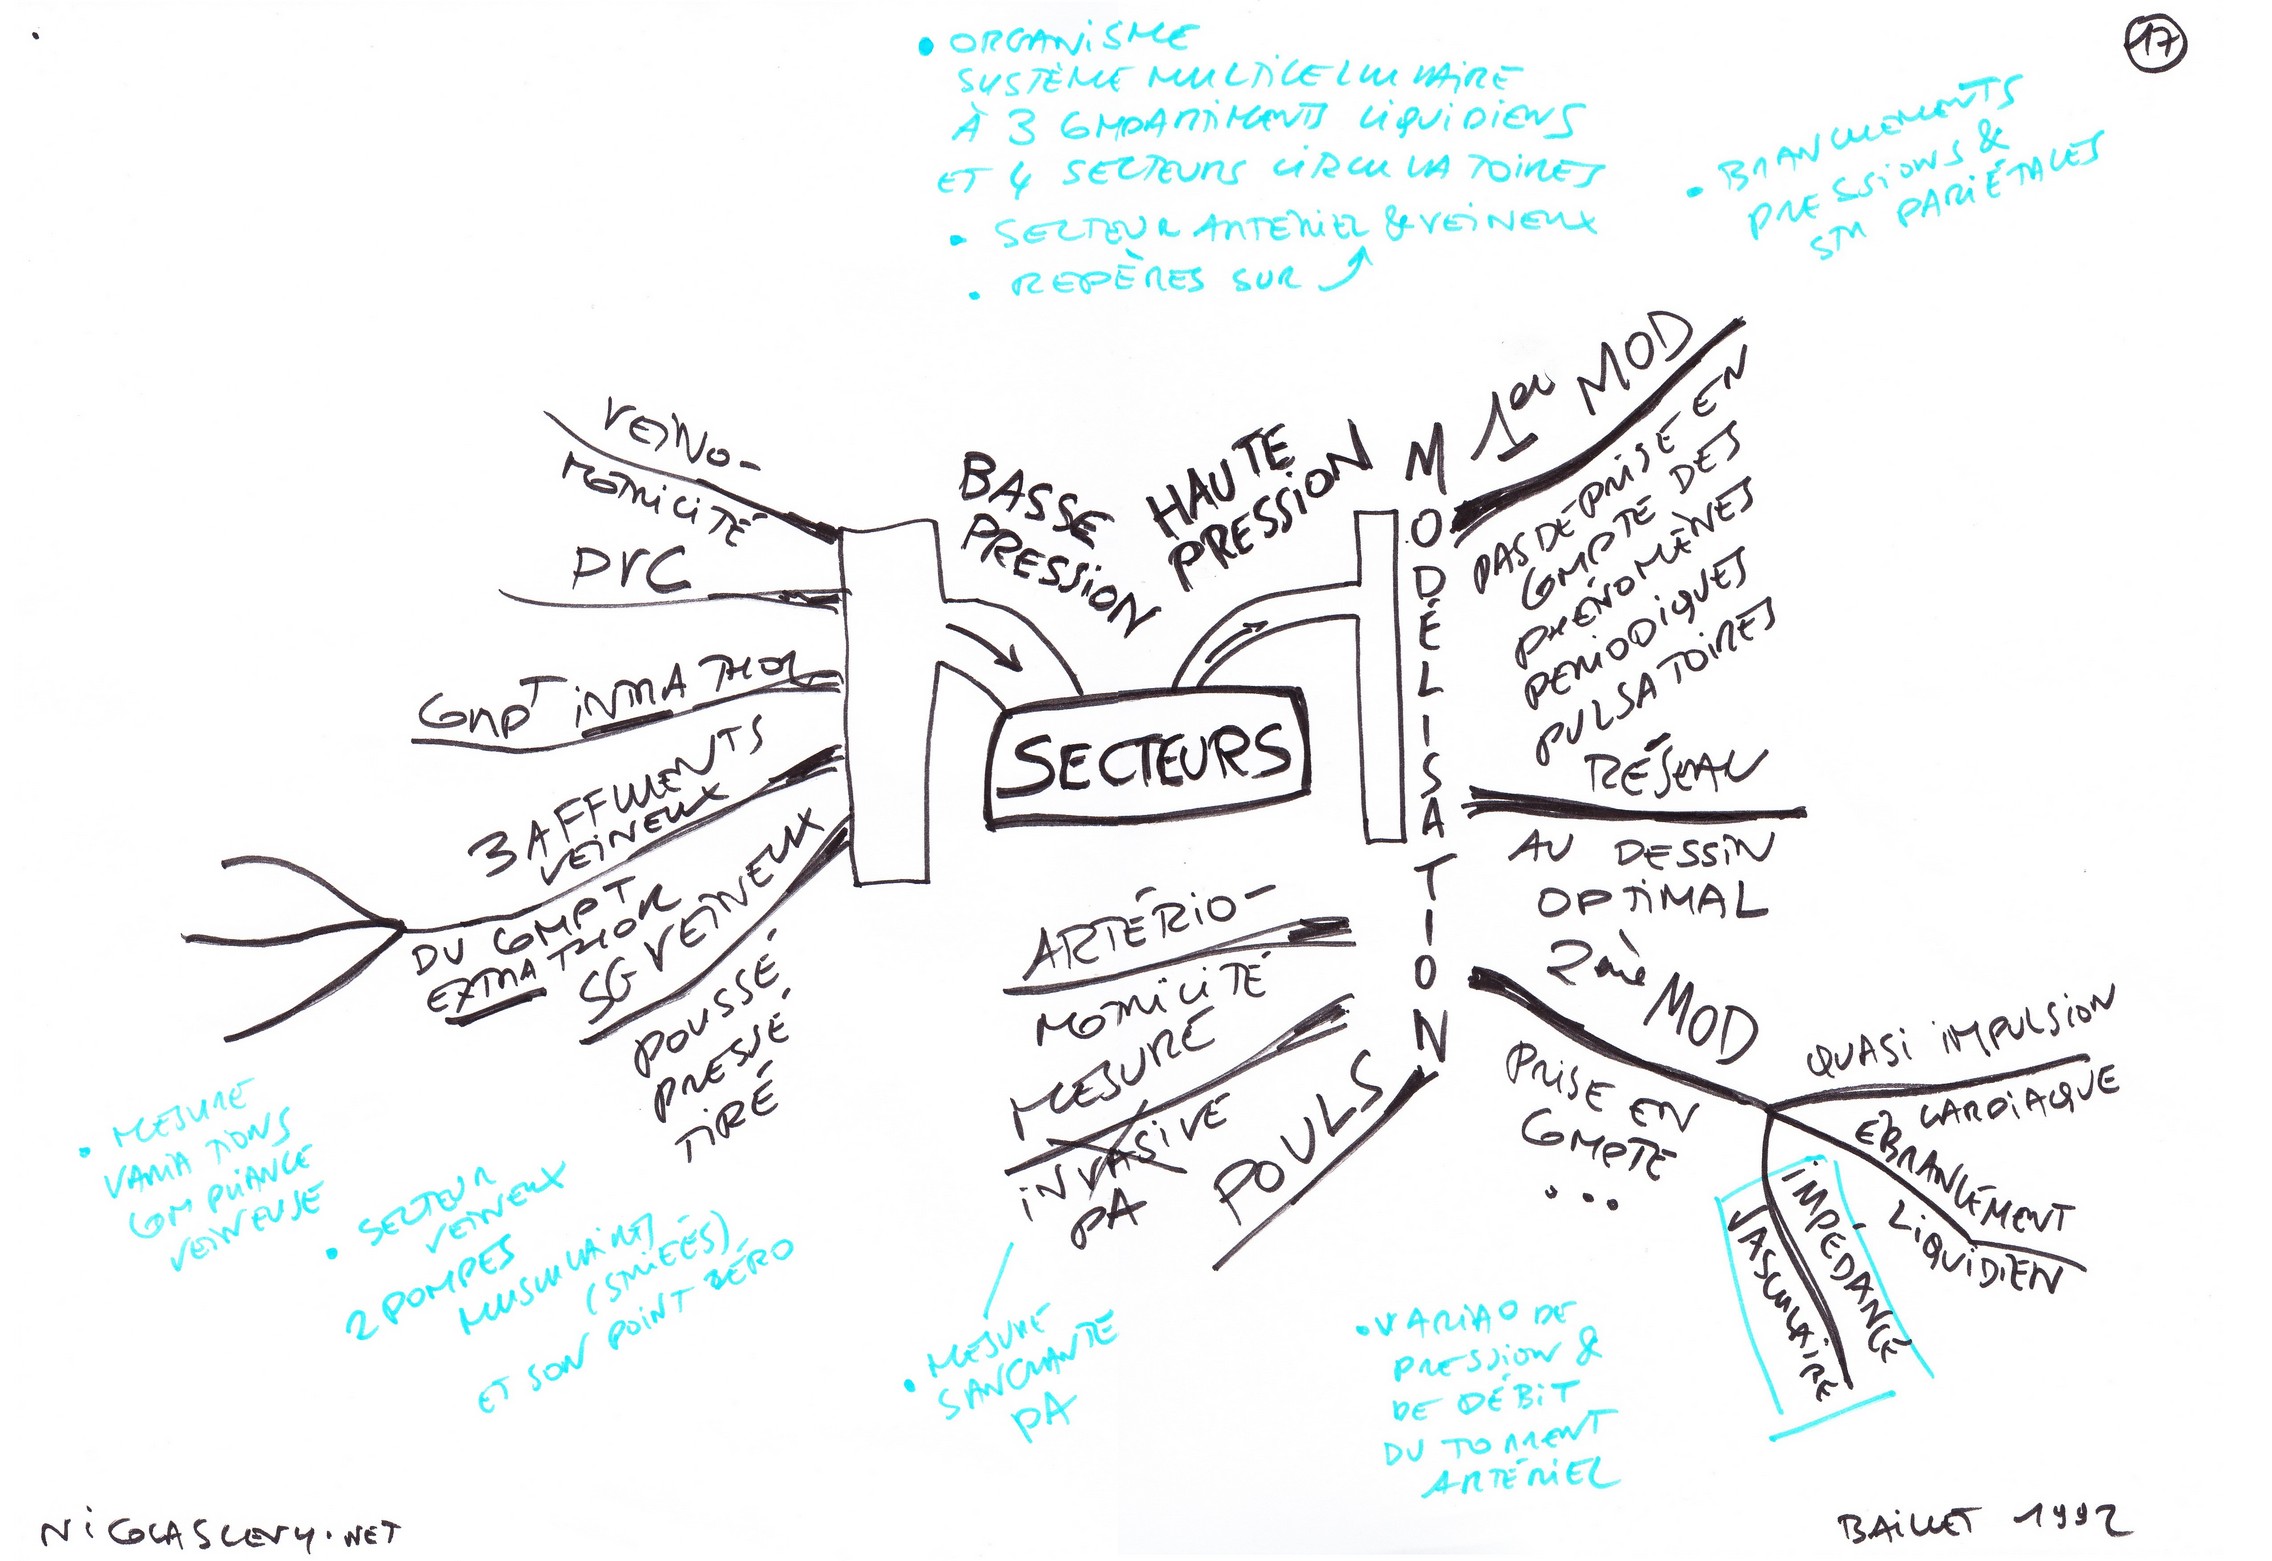 17
• ORGANISME
SYSTÈME MULTICELLULAIRE
À 3 COMPARTIMENTS LIQUIDIENS
ET 4 SECTEURS CIRCULATOIRES
• SECTEUR ARTÉRIEL & VEINEUX
• REPÈRES SUR
• BRANCHEMENTS
PRESSIONS &
STR PARIÉTALES
BASSE
PRESSION
HAUTE
PRESSION
SECTEURS
VEINO-
MOTRICITÉ
PVC
COMPT INTRA THOR
3 AFFLUENTS
VEINEUX
DU COMPT
EXTRA THOR
SG VEINEUX
POUSSÉ
PRESSÉ
TIRÉ
MODÉLISATION
1ER MOD
PAS DE PRISE EN
COMPTE DES
PHÉNOMÈNES
PERIODIQUES
PULSATOIRES
RÉSEAU
AU DESSIN
OPTIMAL
2ÈME MOD
PRISE EN
COMPTE
...
QUASI IMPULSION
CARDIAQUE
EBRANLEMENT
LIQUIDIEN
IMPÉDANCE
VASCULAIRE
ARTÉRIO-
MOTRICITÉ
MESURE
INVASIVE
PA
POULS
• MESURE
VARIATIONS
COMPLIANCE
VEINEUSE
• SECTEUR
VEINEUX
2 POMPES
MUSCULAIRES
(STRIÉES)
ET SON POINT ZÉRO
• MESURE
SANGLANTE
PA
• VARIAO DE
PRESSION &
DE DÉBIT
DU TORRENT
ARTÉRIEL
NICOLASLEVY.NET
BAILLET 1992